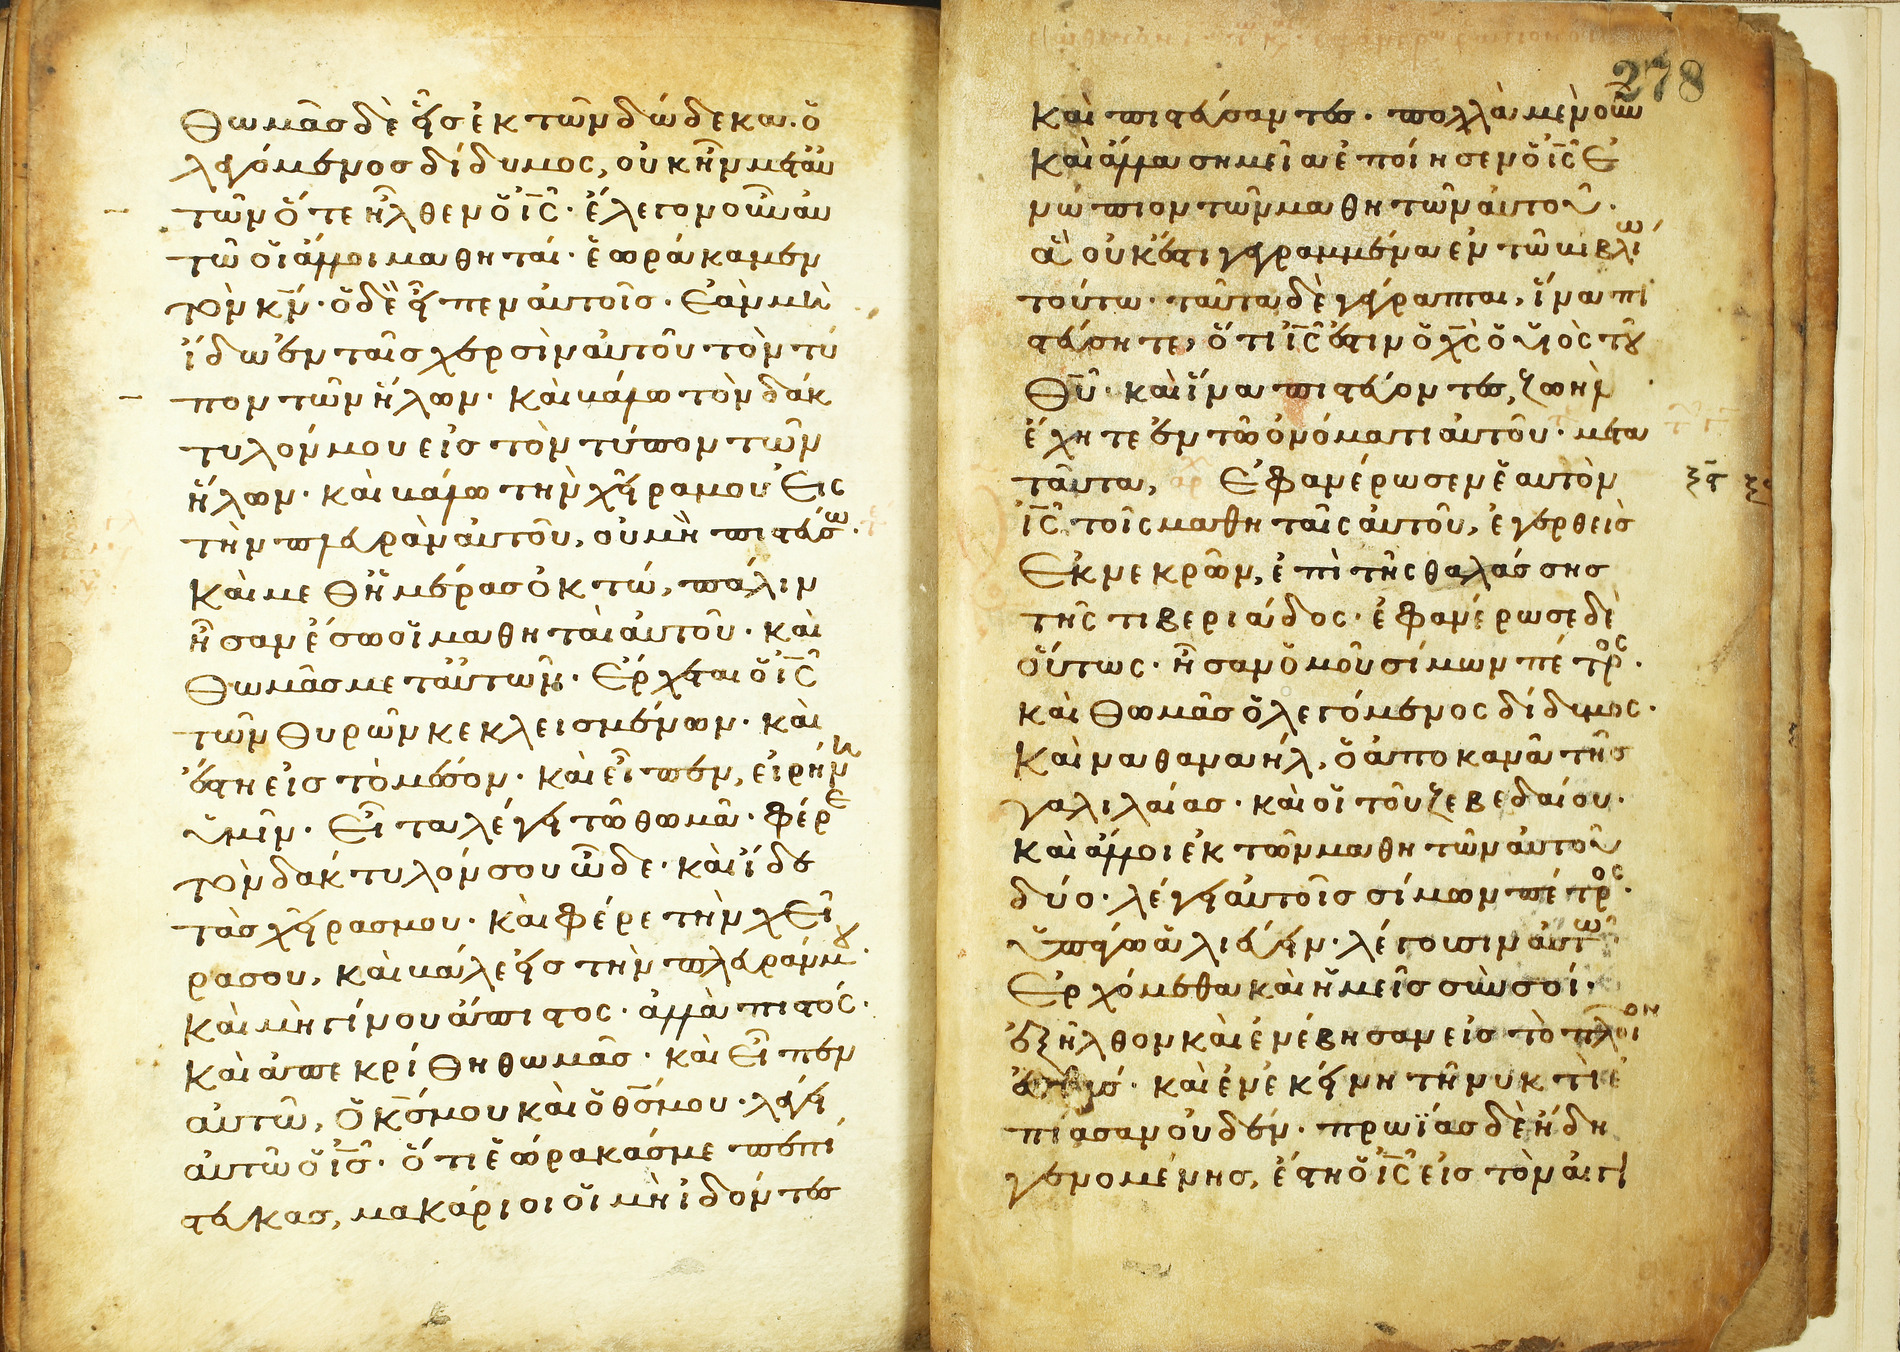 Θωμᾶσ δὲ εἷσ ἐκ τῶν δώδεκα. ὁ
λεγόμενοσ δίδυμος, οὐκ ἦν μεταυ
τῶν ὅτε ἦλθεν ὁ ις· ἔλεγον οὖν αυ
τῶ οἱ ἄλλοι μαθηταί· ἑωράκαμεν
τὸν κν· ὁ δὲ εἶπεν αὐτοῖσ· Ἐὰν μὴ
ἴδω ἐν ταῖσ χερσὶν αὐτοῦ τὸν τύ
πον τῶν ἥλων· καὶ βάλω τὸν δάκ
τυλόν μου εἰσ τὸν τύπον τῶν
ἥλων· καὶ βάλω τὴν χεῖρα μου Εἰς
τὴν πλευρὰν αὐτοῦ, οὐ μὴ πιστεύσω·
Καὶ μεθ ἡμέρασ ὀκτώ, πάλιν
ἦσαν ἔσω οἱ μαθηταὶ αὐτοῦ· καὶ
Θωμᾶσ μετ αὐτῶν· Ἔρχεται ὁ ις
τῶν θυρῶν κεκλεισμένων· καὶ
ἔστη εἰσ τὸ μέσον· καὶ εἶπεν, εἰρήνη
ὑμῖν· Εἶτα λέγει τῶ θωμᾶ· φέρε
τὸν δάκτυλόν σου ὧδε· καὶ ἴδε
τὰσ χεῖρασ μου· καὶ φέρε τὴν χεῖ
ρα σου, καὶ βάλε εἰσ τὴν πλευράν μου·
Καὶ μὴ γίνου ἄπιστος· ἀλλὰ πιστός·
Καὶ ἀπεκρίθη θωμᾶσ· καὶ εἶπεν
αὐτῶ, Ὁ κσ μου καὶ ὁ θσ μου· λέγει
αὐτῶ ὁ ισ· ὅτι ἑώρακάσ με πεπί
στευκασ, μακάριοι οἱ μὴ ἰδόντες
278
Καὶ πιστεύσαντες· πολλὰ μὲν οὖν
Καὶ ἄλλα σημεῖα ἐποίησεν ὁ ις Ἐ
νώπιον τῶν μαθητῶν αὐτοῦ·
ἃ οὐκ ἔστι γεγραμμένα ἐν τῶ βιβλίω
τούτω· ταῦτα δὲ γέγραπται, ἵνα πι
στεύσητε, ὅτι ις ἐστιν ὁ χς ὁ υἱὸς τοῦ
Θυ· καὶ ἵνα πιστεύοντες, ζωὴν
ἔχητε ἐν τῶ ὀνόματι αὐτοῦ· μετα
ταῦτα, Ἐφανέρωσεν ἑαυτὸν
ξς
ις τοῖς μαθηταῖς αὐτοῦ, ἐγερθεὶσ
Ἐκ νεκρῶν, ἐπὶ τῆς θαλάσσησ
τῆς τιβεριάδος· ἐφανέρωσε δὲ
οὕτως· ἦσαν ὁμοῦ σίμων πέτρος·
καὶ Θωμᾶσ ὁ λεγόμενος δίδυμος·
Καὶ ναθαναήλ, ὁ ἀπο κανᾶ τῆσ
γαλιλαίασ· καὶ οἱ τοῦ ζεβεδαίου·
Καὶ ἄλλοι ἐκ τῶν μαθητῶν αὐτοῦ
δύο· λέγει αὐτοῖσ σίμων πέτρος·
ὑπάγω ἁλιεύειν· λέγουσιν αὐτῶ
Ἐρχόμεθα καὶ ἡμεῖσ σὺν σοί·
ἐξῆλθον καὶ ἐνέβησαν εἰσ τὸ πλοῖον
καὶ ἐν ἐκείνη τῆ νυκτὶ ἐ
πίασαν οὐδέν· πρωϊασ δὲ ἤδη
γενομένησ, ἔστη ὁ ις εἰσ τὸν αἰγι